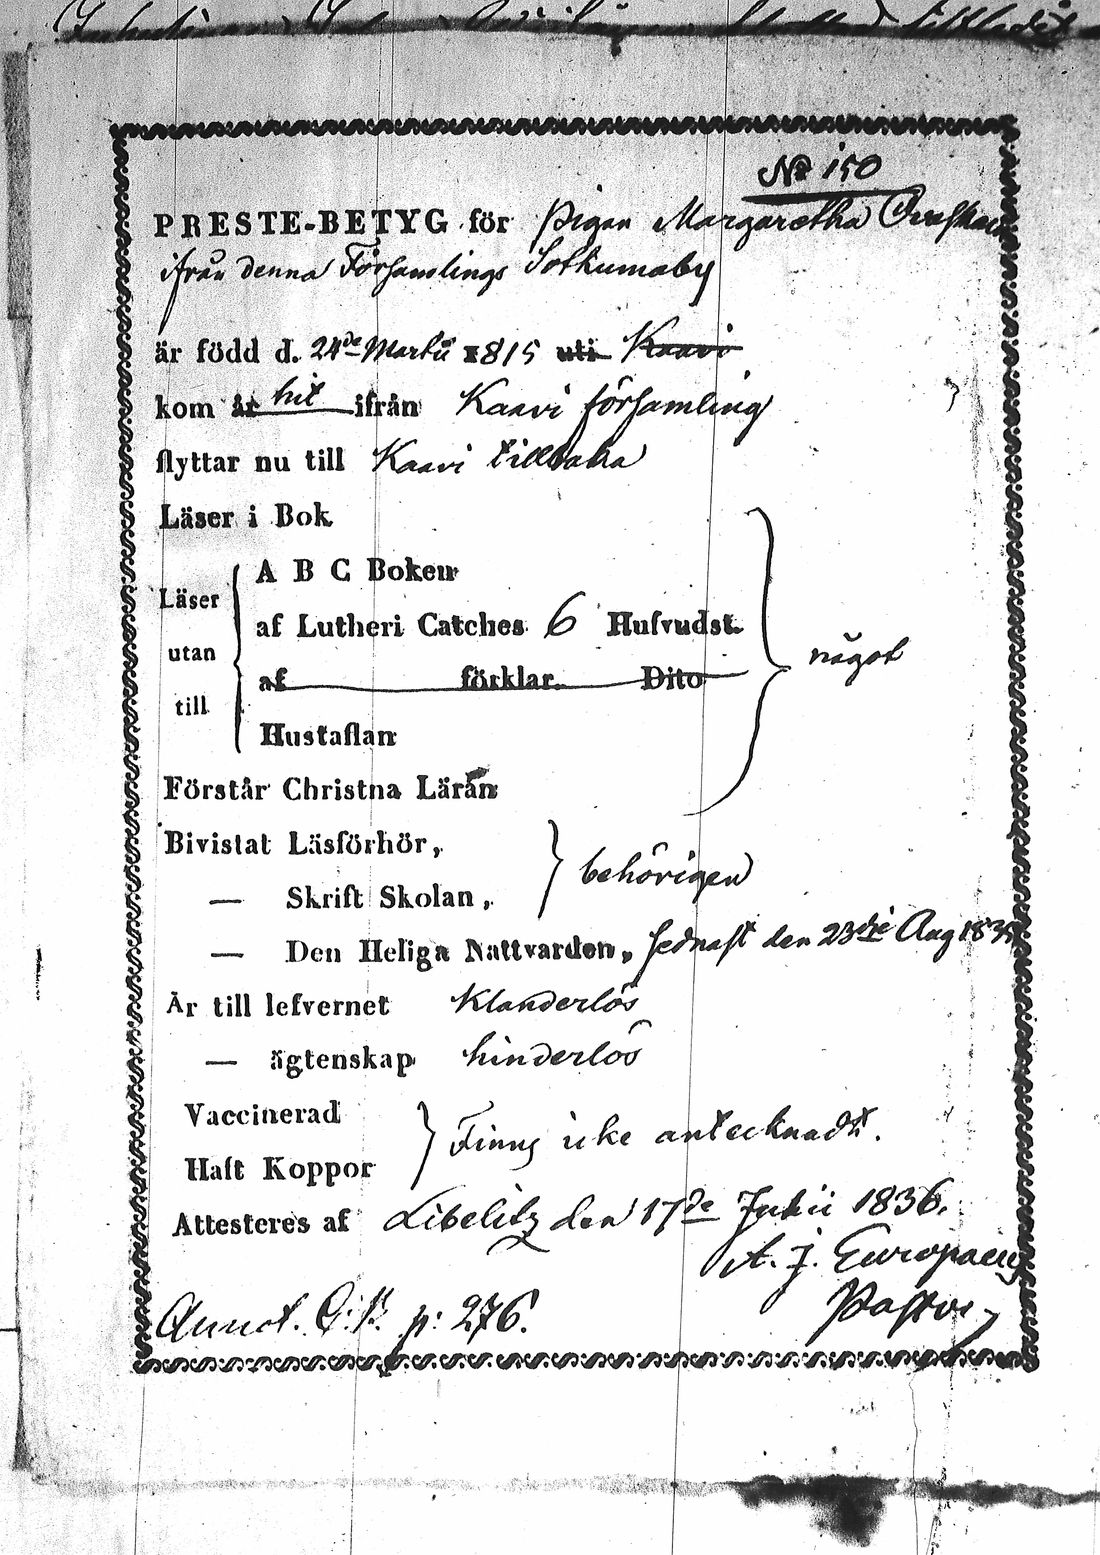 No 150
PRESTE-BETYG för Pigan Margaretha
ifrån denna Församlings Sotkumaby
är född d. 24de Martii 1815 uti Kaavi
kom år hit ifrån Kaavi församling
flyttar nu till Kaavi tillbaka
Läser i Bok
A B C Boken
Läser
af Lutheri Catches 6 Hufvudst.
utan
något
af förklar. Dito
till
Hustaflan
Förstår Christna Läran
Bivistat Läsförhör,
behörigen
— Skrift Skolan,
— Den Heliga Nattvarden, sednast den 23die Aug
Är till lefvernet klanderlös
— ägtenskap hinderlös
Vaccinerad
Finns icke antecknadt.
Haft Koppor
Attesteres af Libelitz den 17de Julii 1836.
A. J. Europaeus
Pastor
Annot. p: 276.